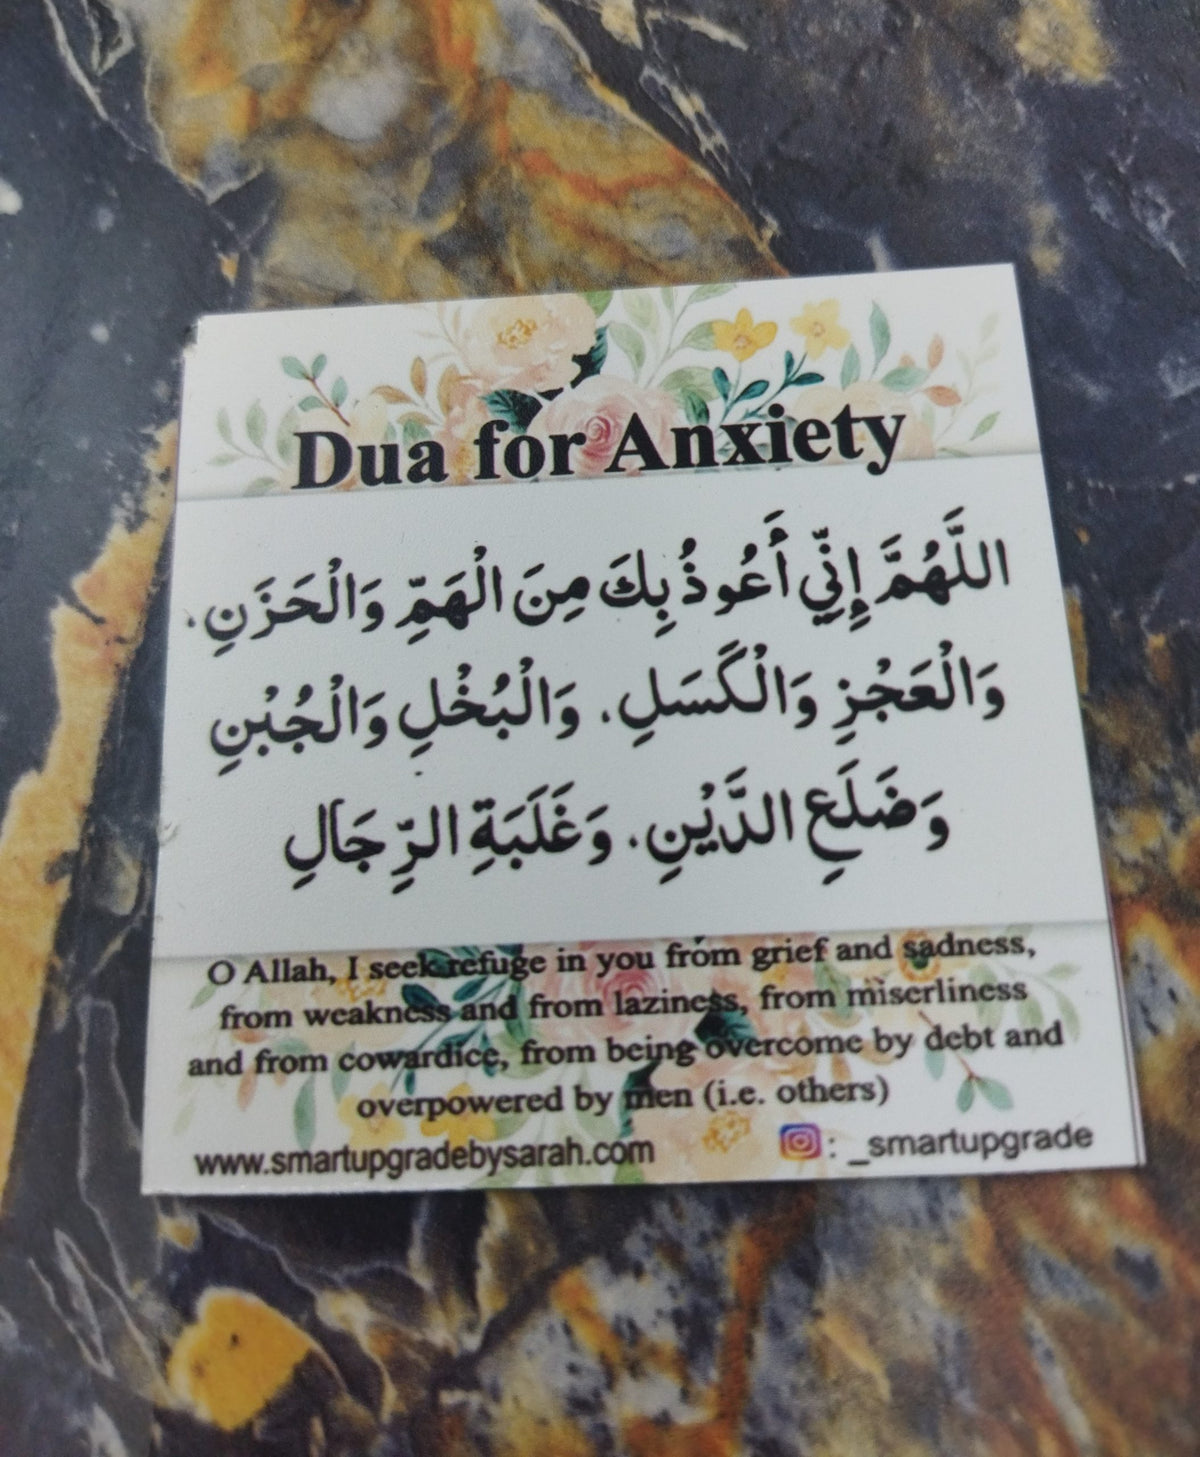 Dua for Anxiety
اللَّهُمَّ إِنِّي أَعُوذُ بِكَ مِنَ الْهَمِّ وَالْحَزَنِ،
وَالْعَجْزِ وَالْكَسَلِ، وَالْبُخْلِ وَالْجُبْنِ
وَضَلَعِ الدَّيْنِ، وَغَلَبَةِ الرِّجَالِ
O Allah, I seek refuge in you from grief and sadness,
from weakness and from laziness, from miserliness
and from cowardice, from being overcome by debt and
overpowered by men (i.e. others)
www.smartupgradebysarah.com : _smartupgrade